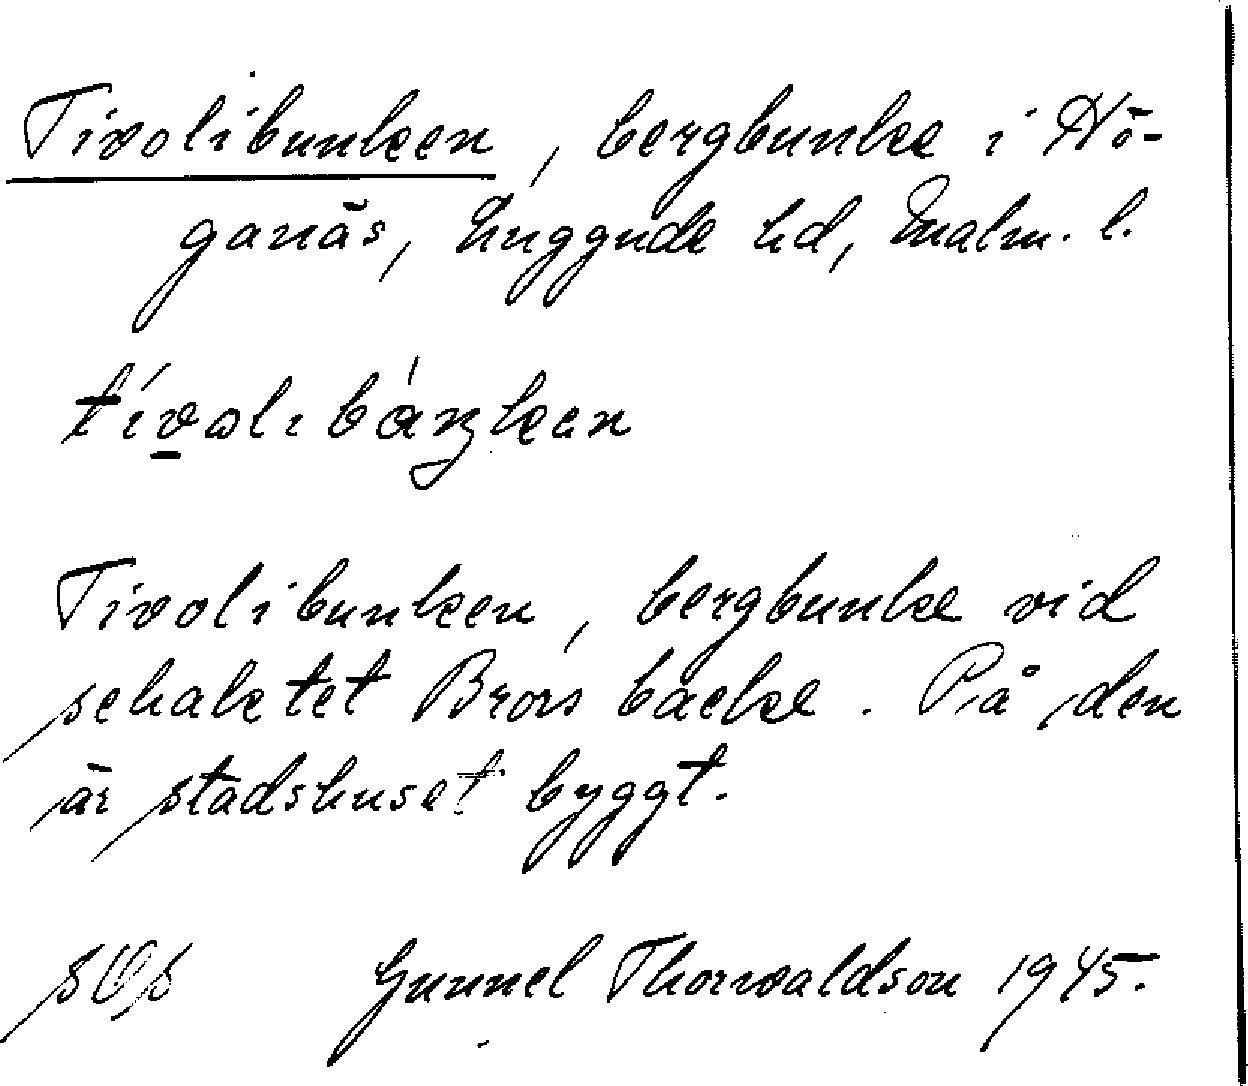 Tivolibunken, bergbunke i Hö-
ganäs, Luggude hd, Malm. l.
Tivolibunken, bergbunke vid
schaktet Brors backe. På den
är stadshuset byggt.
Gunnel Thorwaldson 1945.